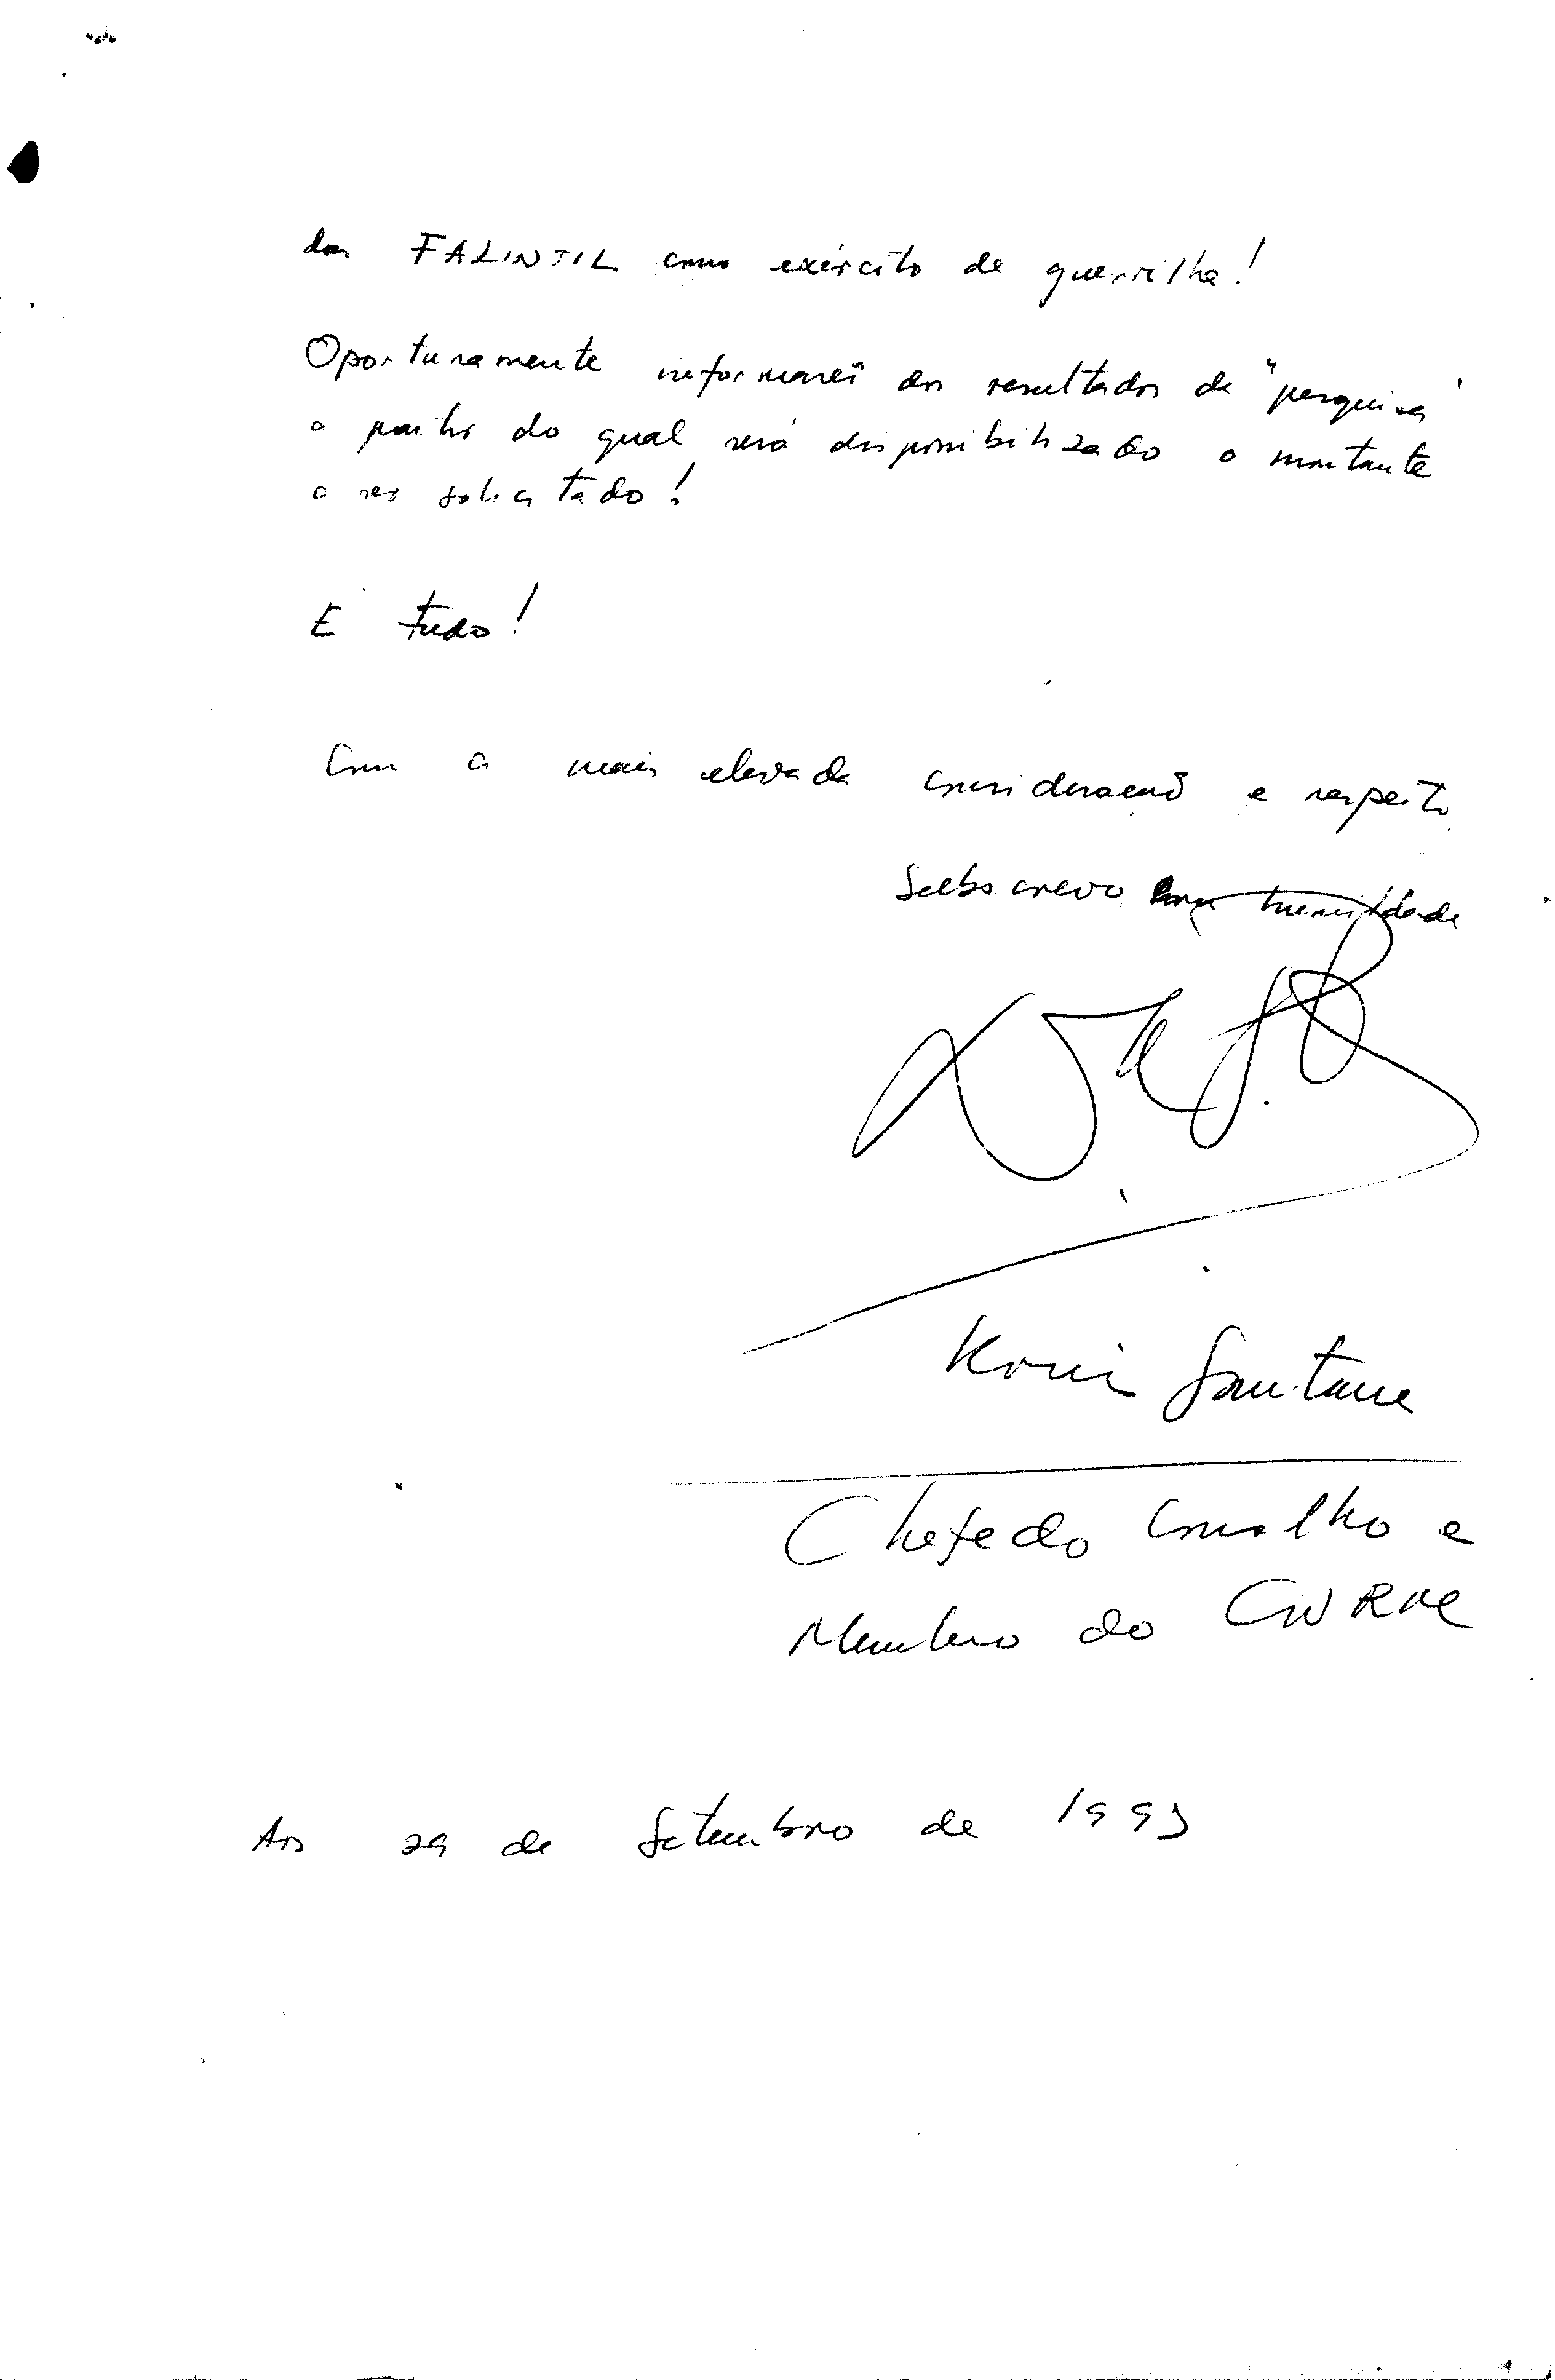 das FALINTIL como exército de guerrilha!
Oportunamente informarei dos resultados da "pesquisa"
a partir do qual será disponibilizado o montante
a ser solicitado!
E tudo!
Com a mais elevada consideração e respeito
Subscrevo com humildade
Konis Santana
Chefe do Conselho e
Membro do CNRM
Aos 29 de Setembro de 1993